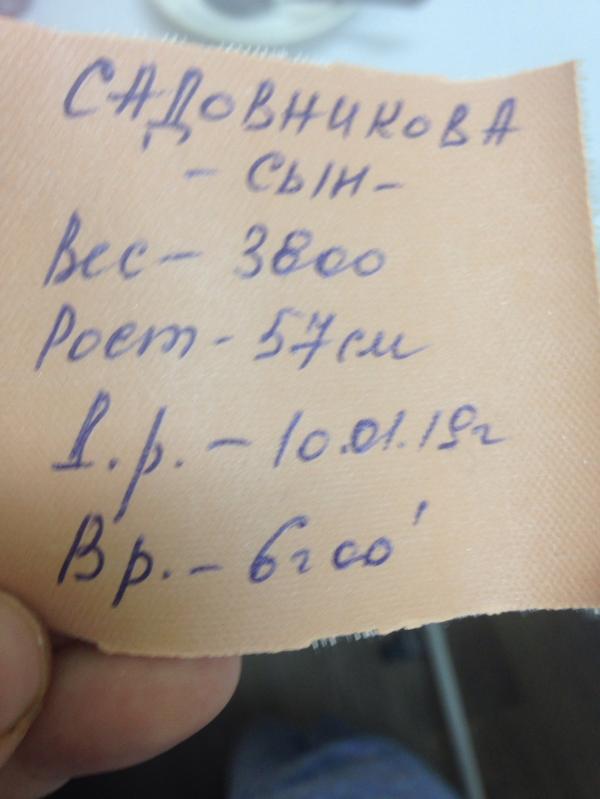 САДОВНИКОВА
- СЫН -
Вес - 3800
Рост - 57 см
Д.р. - 10.01.19г
Вр. - 6г00'